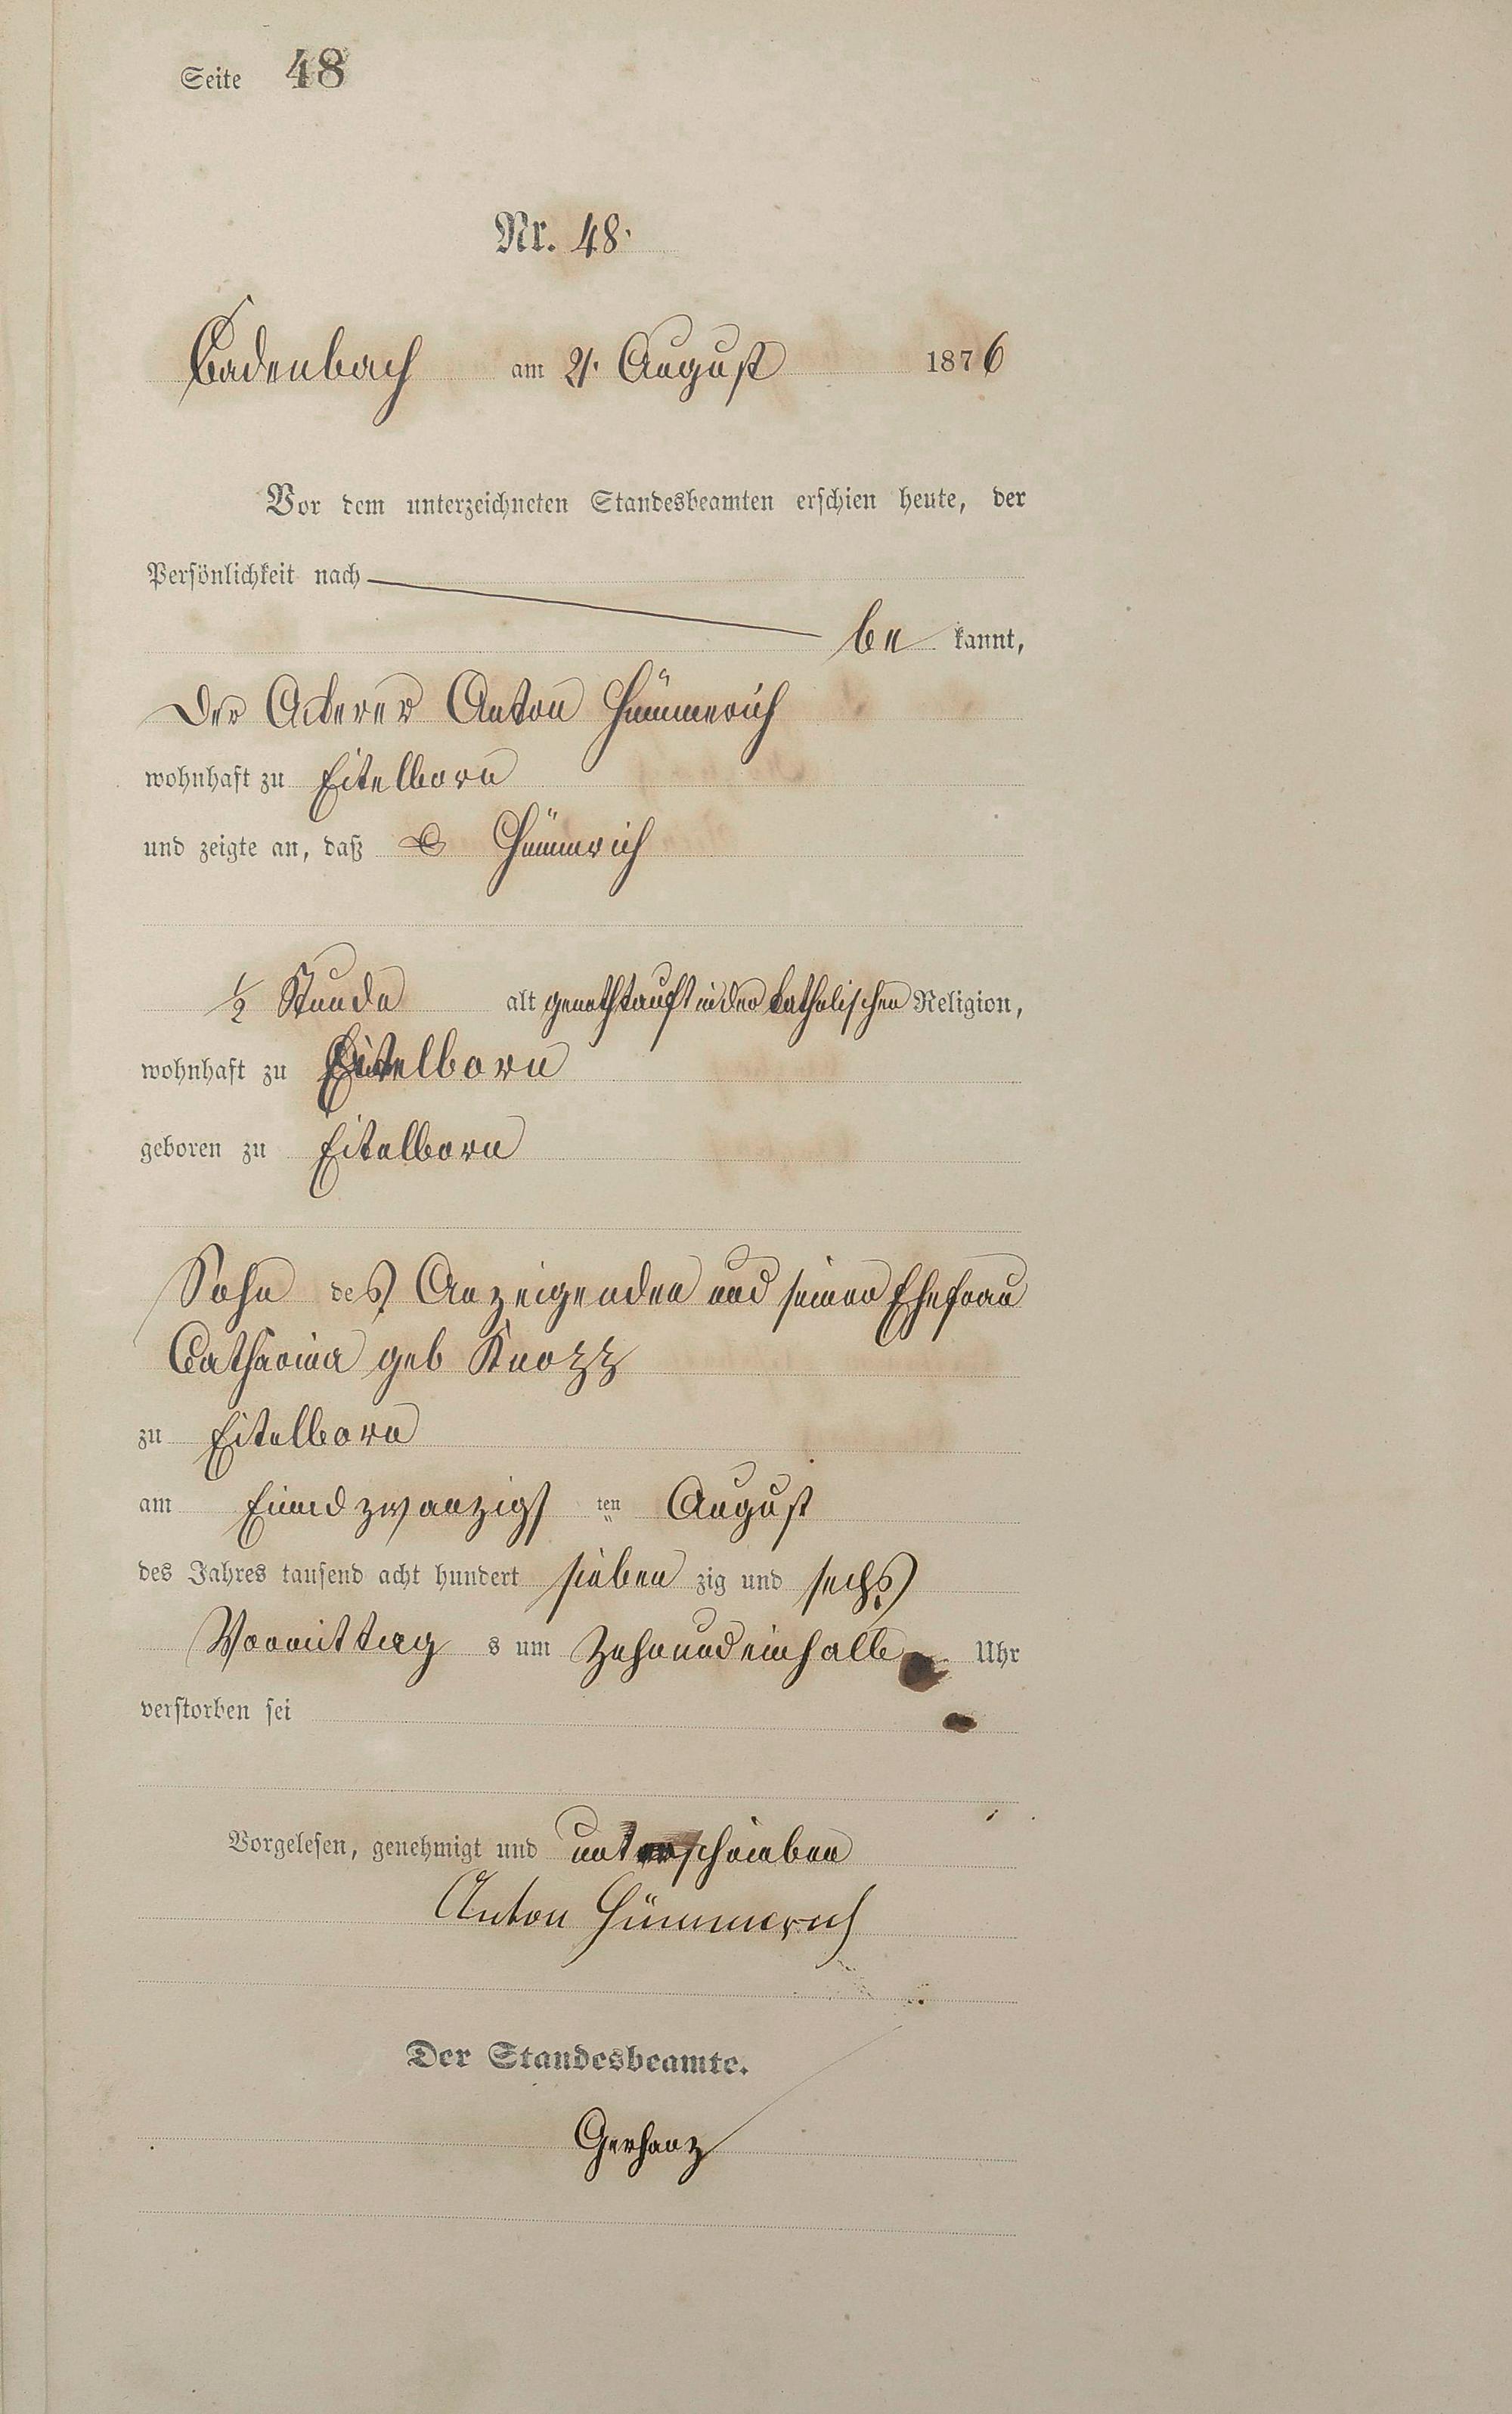 Seite 48
Nr. 48.
Cadenbach am 21. August 1876
Vor dem unterzeichneten Standesbeamten erschien heute, der
Persönlichkeit nach
be kannt,
der Ackerer Anton Hümmerich
wohnhaft zu Eitelborn
und zeigte an, daß Hümmrich
1/2 Stunde alt genothtauft in der katholischen Religion,
wohnhaft zu Eitelborn
geboren zu Eitelborn
Sohn des Anzeigenden und seiner Ehefrau
Catharina geb Knozz
zu Eitelborn
am Einundzwanzigs ten August
des Jahres tausend acht hundert sieben zig und sechs
Vormittag s um Zehnundeinhalb Uhr
verstorben sei
Vorgelesen, genehmigt und unterschrieben
Anton Hümmerich
Der Standesbeamte.
Gerharz